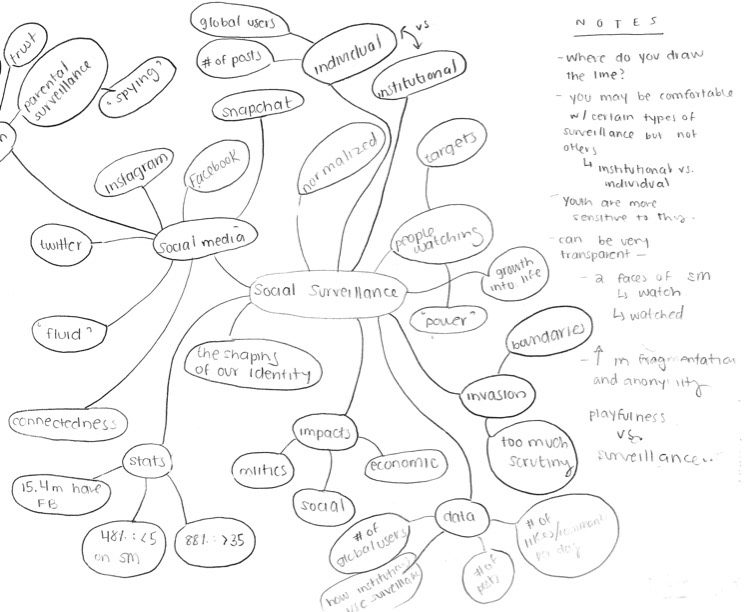 global users
# of posts
individual
vs
institutional
trust
parental
surveillance
"spying"
snapchat
Instagram
Facebook
normalized
targets
twitter
social media
people
watching
growth
into life
Social Surveillance
"power"
"fluid"
the shaping
of our identity
boundaries
invasion
too much
scrutiny
connectedness
impacts
economic
social
stats
15.4m have
FB
on SM
88% : >35
data
# of
global users
# of
posts
# of
likes/comment
per day
NOTES
- Where do you draw
the line?
- you may be comfortable
w/ certain types of
surveillance but not
others
↳ institutional vs.
individual
- Youth are more
sensitive to this.
- can be very
transparent -
- 2 faces of SM
↳ watch
↳ watched
- ↑ in fragmentation
and
playfulness
vs.
surveillance..